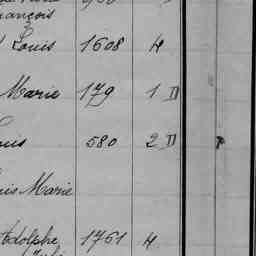 François
Louis 1608 H
Marie 179 1 D
580 2 D
Marie
Adolphe 1761 H